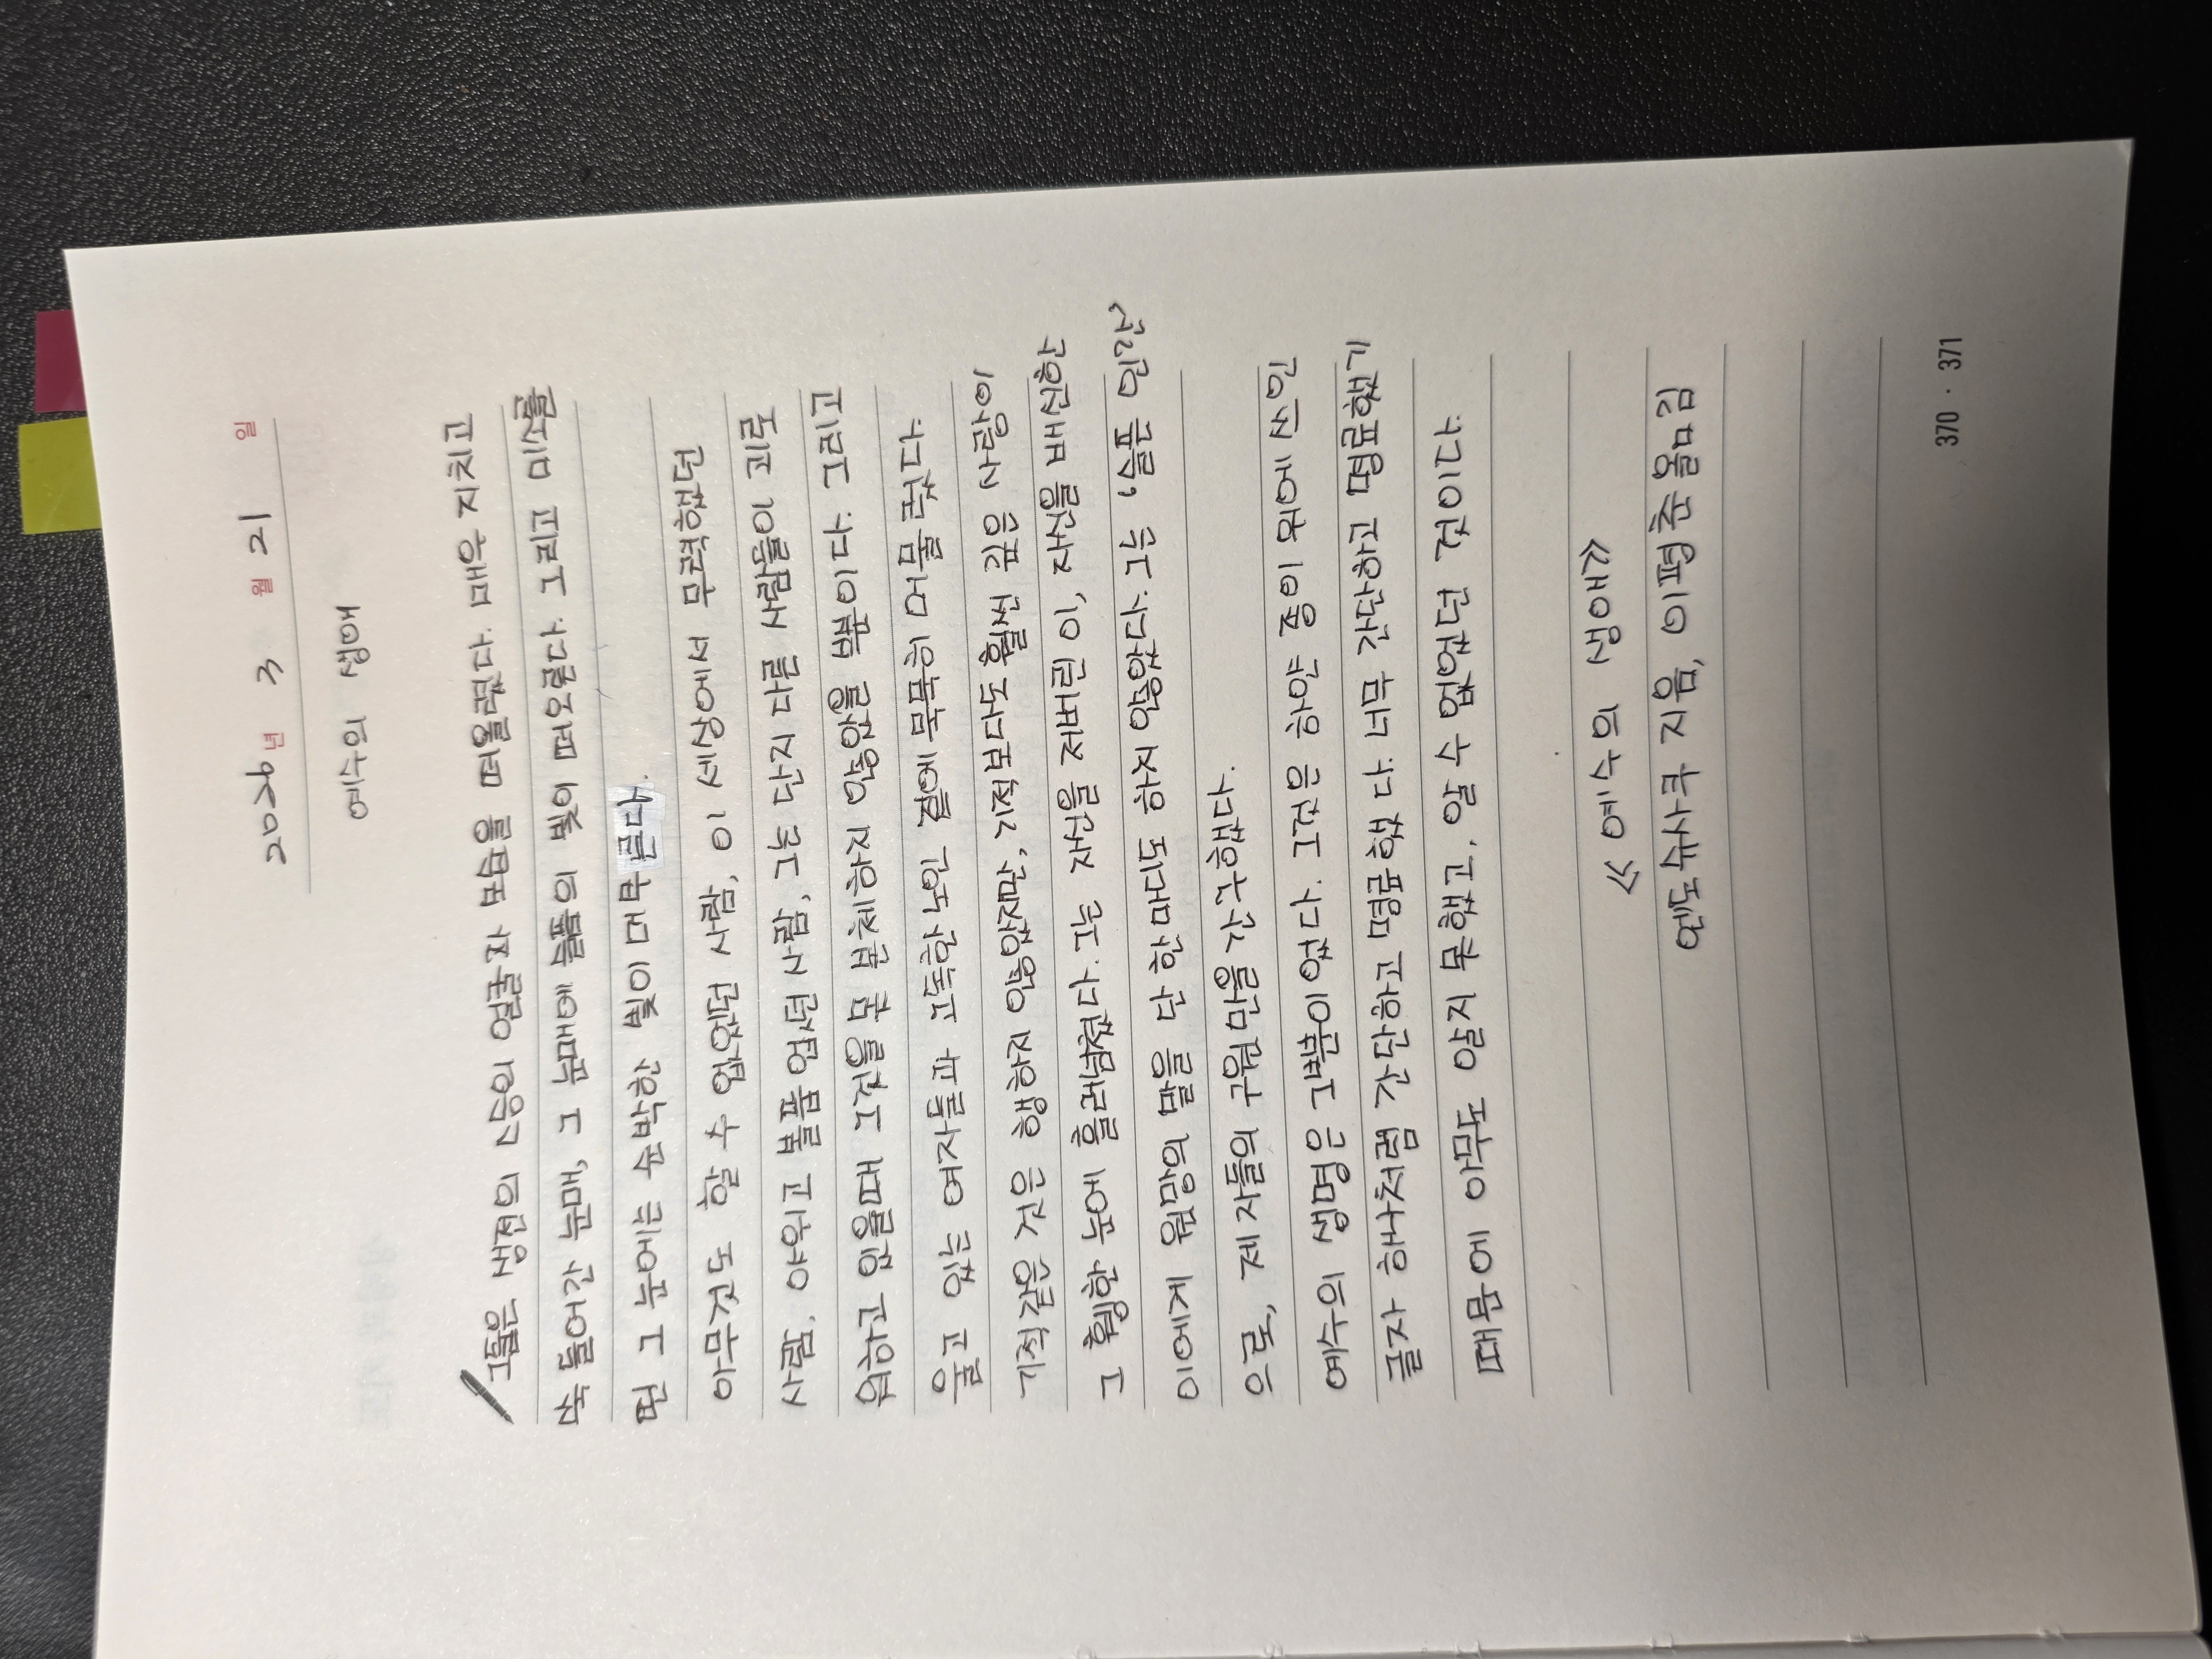 2026년 3 월 21 일
예수의 생애
그들은 생전의 스승의 얼굴과 모습을 떠올렸다. 매우 지치고
쑥 들어간 눈매, 그 눈매에 슬픔의 빛이 떠오른다. 그리고 미소를
띤 그 눈에는 순박한 빛이 머무른다.
아무것도 할 수 없었던 사람, 이 세상에서 무력했던
사람, 야위고 볼품 없던 사람, 그는 단지 다른 사람들이 괴로
워하고 있을때 그것을 못 본체하지 않았을 뿐이다. 그리고
울고 있는 여자들과 고독한 노인 곁에 묵묵히 머물렀다.
기적같은 것은 행하지 않았지만, 기적보다도 훨씬 깊은 사랑이
그 휑한 눈에 흘러넘쳤다. 그는 자신을 저버린 이, 자신을 배신한
이에게 원망의 말을 단 한마디도 하지 않았다. 그는, 슬픔의 인간,
으로, 제자들의 구원만을 간구했다.
예수의 생명은 그뿐이었다. 그것은 하얀 종이 위에 쓰인
글자 하나처럼 간단하고 명료했다. 너무 간단하고 명료했기
때문에 아무도 알지 못했고, 알 수 없었던 것이다.
≪예수의 생애≫
엔도슈사쿠 지음, 이평춘 옮김
370 · 371